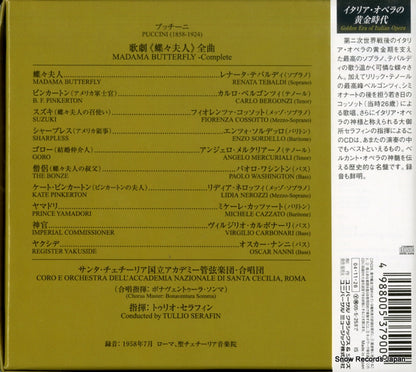 プッチーニ
PUCCINI (1858-1924)
歌劇《蝶々夫人》全曲
MADAMA BUTTERFLY -Complete
蝶々夫人 レナータ・テバルディ(ソプラノ)
MADAMA BUTTERFLY RENATA TEBALDI (Soprano)
ピンカートン(アメリカ軍士官) カルロ・ベルゴンツィ(テノール)
B. F. PINKERTON CARLO BERGONZI (Tenor)
スズキ(蝶々夫人の召使い) フィオレンツァ・コッソット(メゾ・ソプラノ)
SUZUKI FIORENZA COSSOTTO (Mezzo-Soprano)
シャープレス(アメリカ領事) エンツォ・ソルデッロ(バリトン)
SHARPLESS ENZO SORDELLO (Baritone)
ゴロー(結婚仲介人) アンジェロ・メルクリアーノ(テノール)
GORO ANGELO MERCURIALI (Tenor)
僧侶(蝶々夫人の叔父) パオロ・ワシントン(バス)
THE BONZE PAOLO WASHINGTON (Bass)
ケート・ピンカートン(ピンカートンの夫人) リディア・ネロッツィ(メゾ・ソプラノ)
KATE PINKERTON LIDIA NEROZZI (Mezzo-Soprano)
ヤマドリ ミケーレ・カッツァート(バリトン)
PRINCE YAMADORI MICHELE CAZZATO (Baritone)
神官 ヴィルジリオ・カルボナーリ(バス)
IMPERIAL COMMISSIONER VIRGILIO CARBONARI (Bass)
ヤクシデ オスカー・ナンニ(バス)
REGISTER YAKUSIDE OSCAR NANNI (Bass)
サンタ・チェチーリア国立アカデミー管弦楽団・合唱団
CORO E ORCHESTRA DELL'ACCADEMIA NAZIONALE DI SANTA CECILIA, ROMA
(合唱指揮:ボナヴェントゥーラ・ソンマ)
(Chorus Master: Bonaventura Somma)
指揮:トゥリオ・セラフィン
Conducted by TULLIO SERAFIN
録音:1958年7月 ローマ、聖チェチーリア音楽院
イタリア・オペラの
黄金時代
Golden Era of Italian Opera
第二次世界戦後のイタリ
ア・オペラの黄金期を支え
た最高のソプラノ、テバルデ
ィの歌う温かく可憐な蝶々さ
ん。加えてリリック・テノー
ルの最高峰ベルゴンツィ、シ
ミオナートの後を担う若き日の
コッソット(当時26歳)によ
る歌唱、さらにイタリア・オペ
ラの神様と称えられた大御
所セラフィンの指揮によるこ
のCDは、あまたの演奏の中
でもベストといえるもの。ベ
ルカント・オペラの神髄を伝
える歴史的な名盤です。録
音も鮮明。
Snow Records Japan